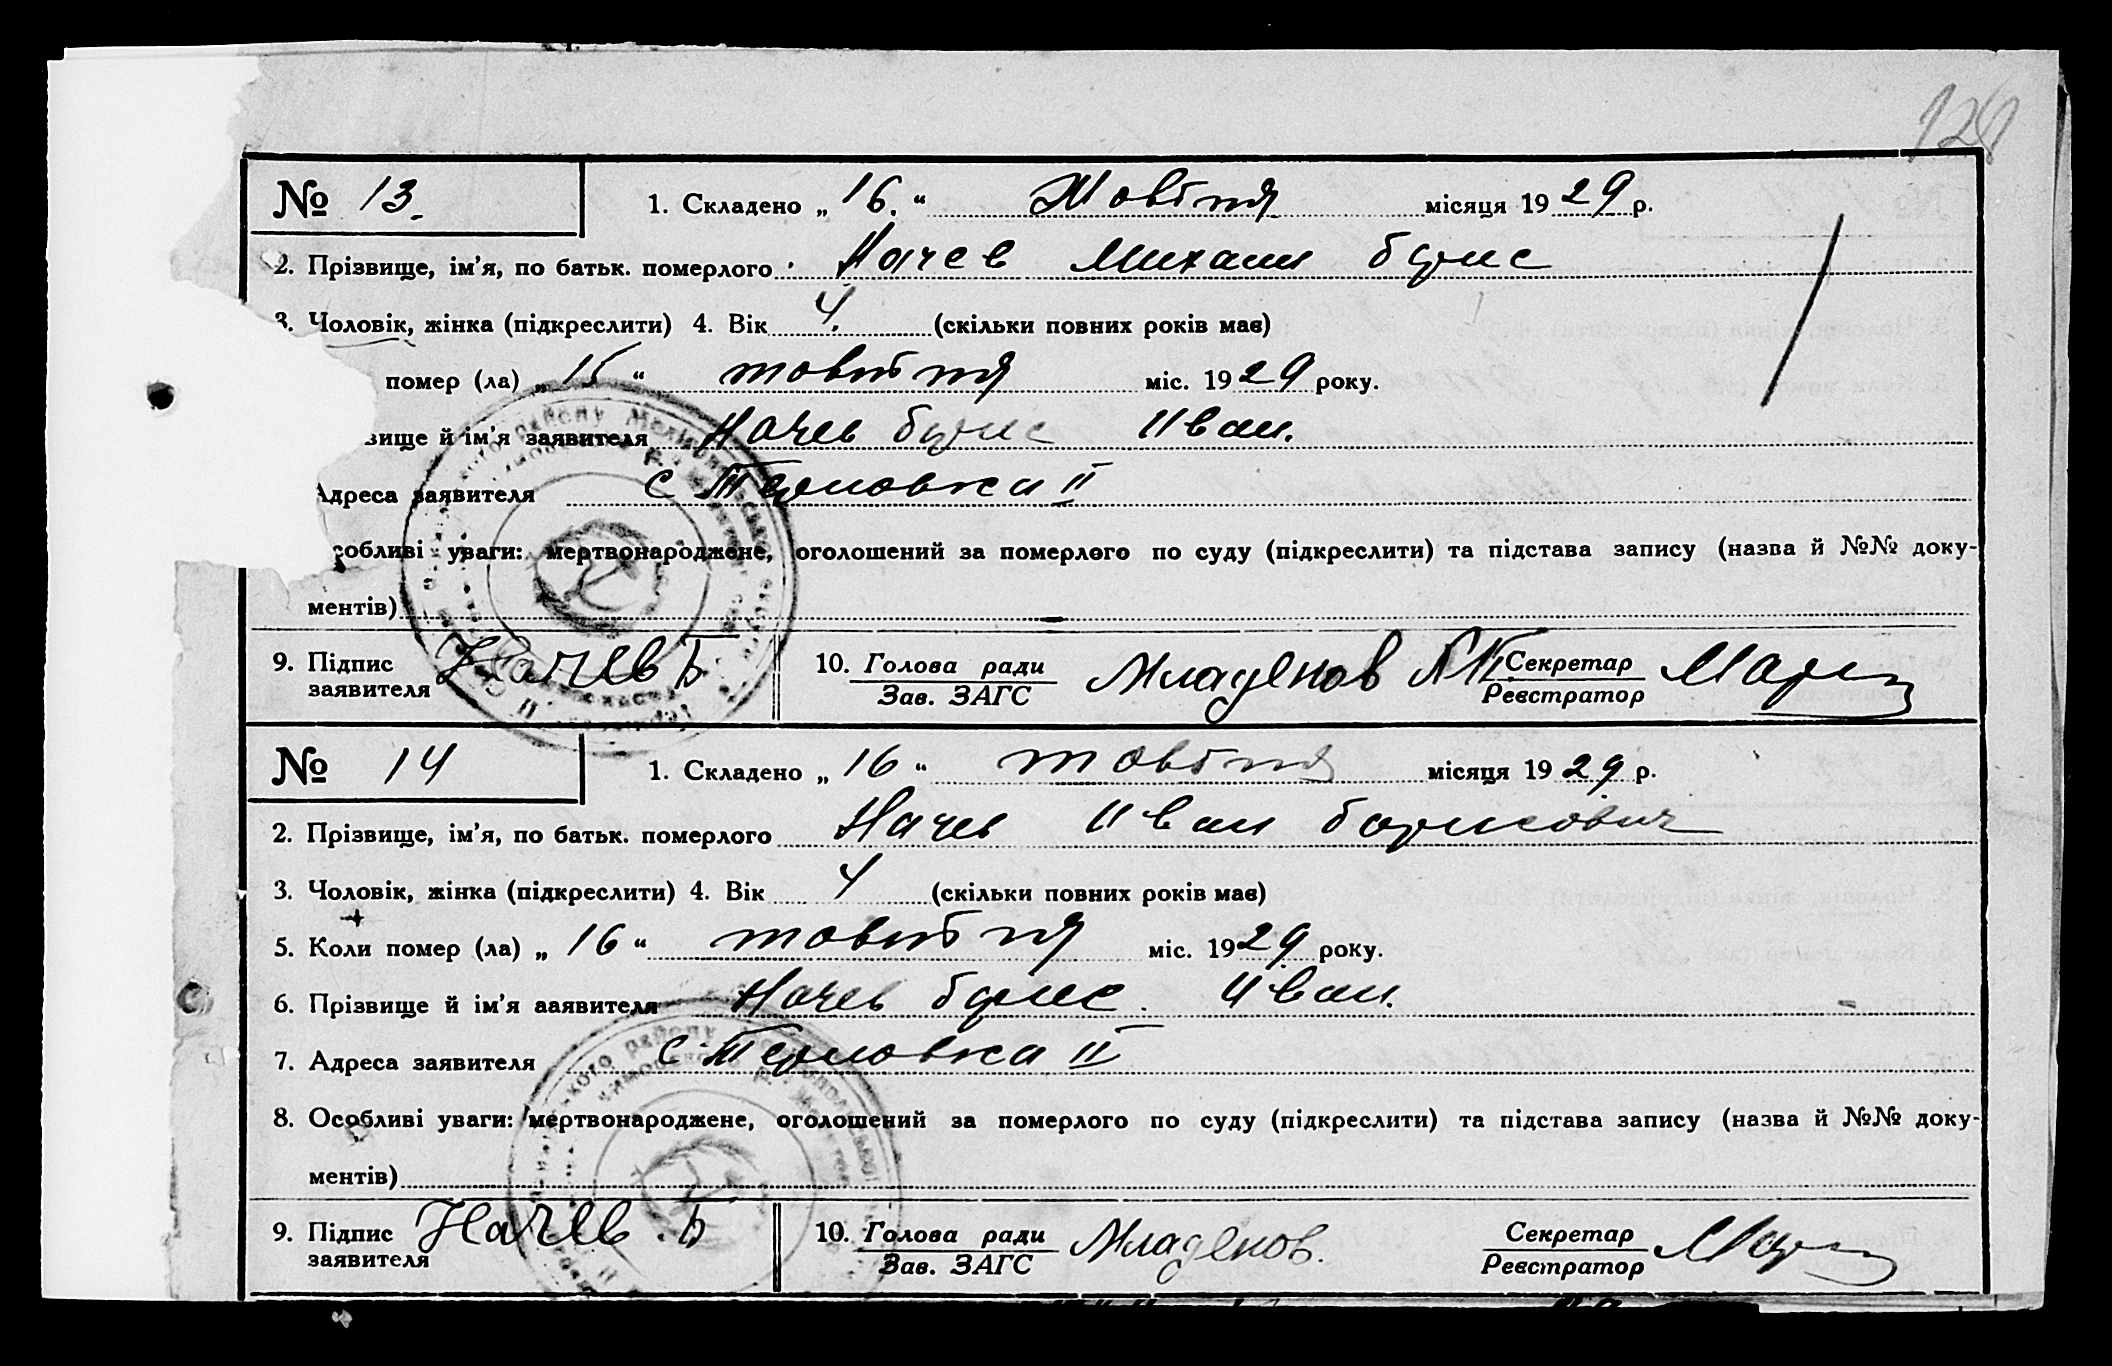 128
№ 13. 1. Складено „ 16. “ Жовтня місяця 1929 р.
2. Прізвище, ім’я, по батьк. померлого Начев Михаил Борис
3. Чоловік, жінка (підкреслити) 4. Вік 4. (скільки повних років має)
помер (ла) „ 15 “ жовтня міс. 1929 року.
вище й ім’я заявителя Начев Борис Иван.
Адреса заявителя с Терновка II
собливі уваги: мертвонароджене, оголошений за померлого по суду (підкреслити) та підстава запису (назва й №№ доку-
ментів)
9. Підпис заявителя Начев Б 10. Голова ради Зав. ЗАГС Младенов Секретар Реєстратор
№ 14 1. Складено „ 16 “ жовтня місяця 1929 р.
2. Прізвище, ім’я, по батьк. померлого Начев Иван Борисович
3. Чоловік, жінка (підкреслити) 4. Вік 4 (скільки повних років має)
5. Коли помер (ла) „ 16 “ жовтня міс. 1929 року.
6. Прізвище й ім’я заявителя Начев Борис Иван.
7. Адреса заявителя с. Терновка II
8. Особливі уваги: мертвонароджене, оголошений за померлого по суду (підкреслити) та підстава запису (назва й №№ доку-
ментів)
9. Підпис заявителя Начев. Б 10. Голова ради Зав. ЗАГС Младенов. Секретар Реєстратор